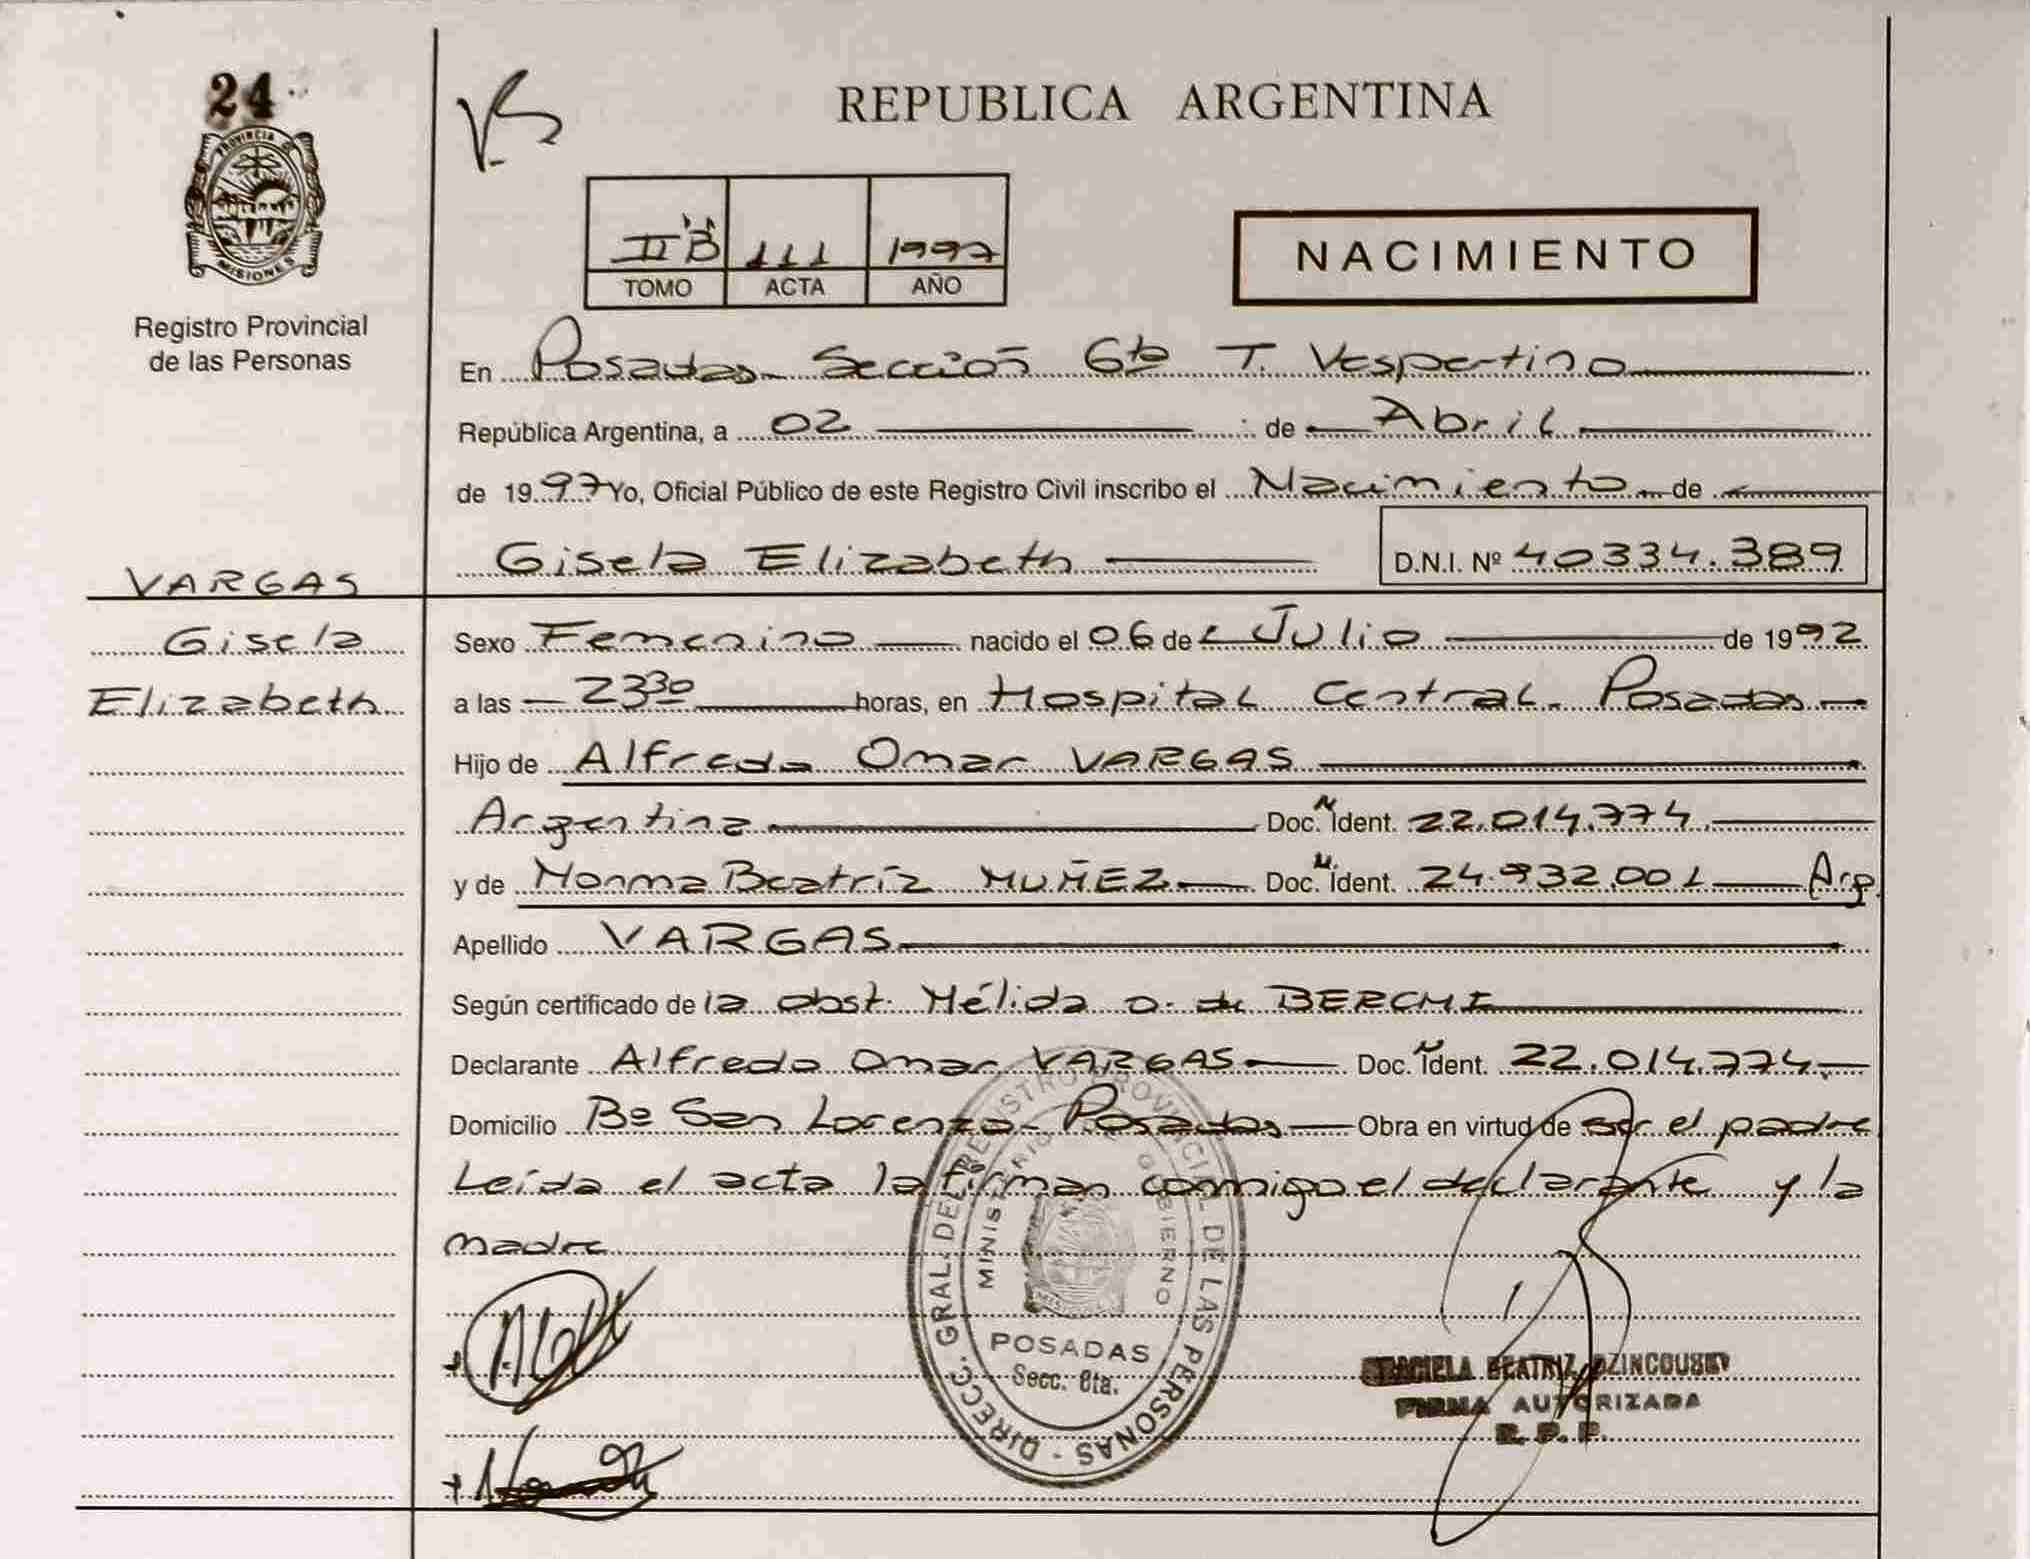 24
PROVINCIA D
MISIONES
Registro Provincial
de las Personas
REPUBLICA ARGENTINA
II "B" 111 1997
TOMO ACTA AÑO
NACIMIENTO
En Posadas Sección 6ta T. Vespertino
República Argentina, a 02 de Abril
de 1997 Yo, Oficial Público de este Registro Civil inscribo el Nacimiento de
Gisela Elizabeth D.N.I. Nº 40334.389
VARGAS
Gisela
Elizabeth
Sexo Femenino nacido el 06 de Julio de 1992
a las 23 30 horas, en Hospital Central. Posadas
Hijo de Alfredo Omar VARGAS
Argentina Doc. N Ident. 22.014.774
y de Norma Beatríz NUÑEZ Doc. N. Ident. 24.932.001 Arg.
Apellido VARGAS
Según certificado de la obst. Nélida O. de
Declarante Alfredo Omar VARGAS Doc. N Ident. 22.014.774
Domicilio Bº San Lorenzo - Posadas Obra en virtud de ser el padre
Leída el acta la firman conmigo el declarante y la
madre
DIRECC. GRAL. DEL REGISTRO PROVINCIAL DE LAS PERSONAS
MINISTERIO GOBIERNO
POSADAS
Secc. 6ta.
GRACIELA BEATRIZ
FIRMA AUTORIZADA
R. P. P.